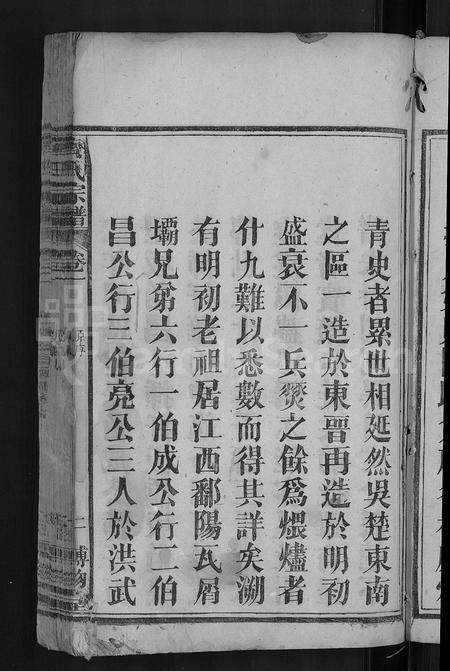 青史者累世相延然吳楚東南
之區一造於東晋再造於明初
盛衰不一兵燹之餘爲煨燼者
什九難以悉數而得其詳矣溯
有明初老祖居江西鄱陽瓦屑
壩兄弟六行一伯成公行二伯
昌公行三伯亮公三人於洪武
氏宗譜
卷一
二